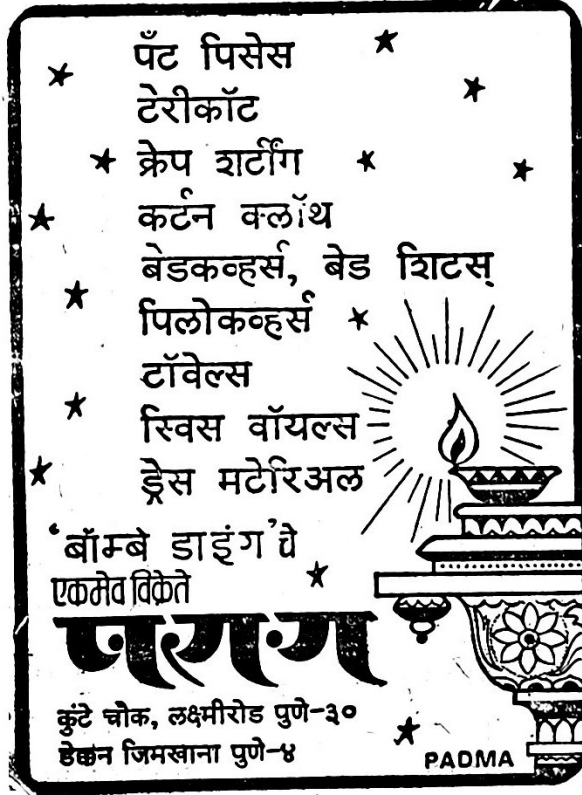 पँट पिसेस
टेरीकॉट
क्रेप शर्टींग
कर्टन क्लॉथ
बेडकव्हर्स, बेड शिटस्
पिलोकव्हर्स
टॉवेल्स
स्विस वॉयल्स
ड्रेस मटेरिअल
‘बॉम्बे डाइंग’चे
एकमेव विक्रेते
पराग
कुंटे चौक, लक्ष्मीरोड पुणे-३०
डेक्कन जिमखाना पुणे-४
PADMA